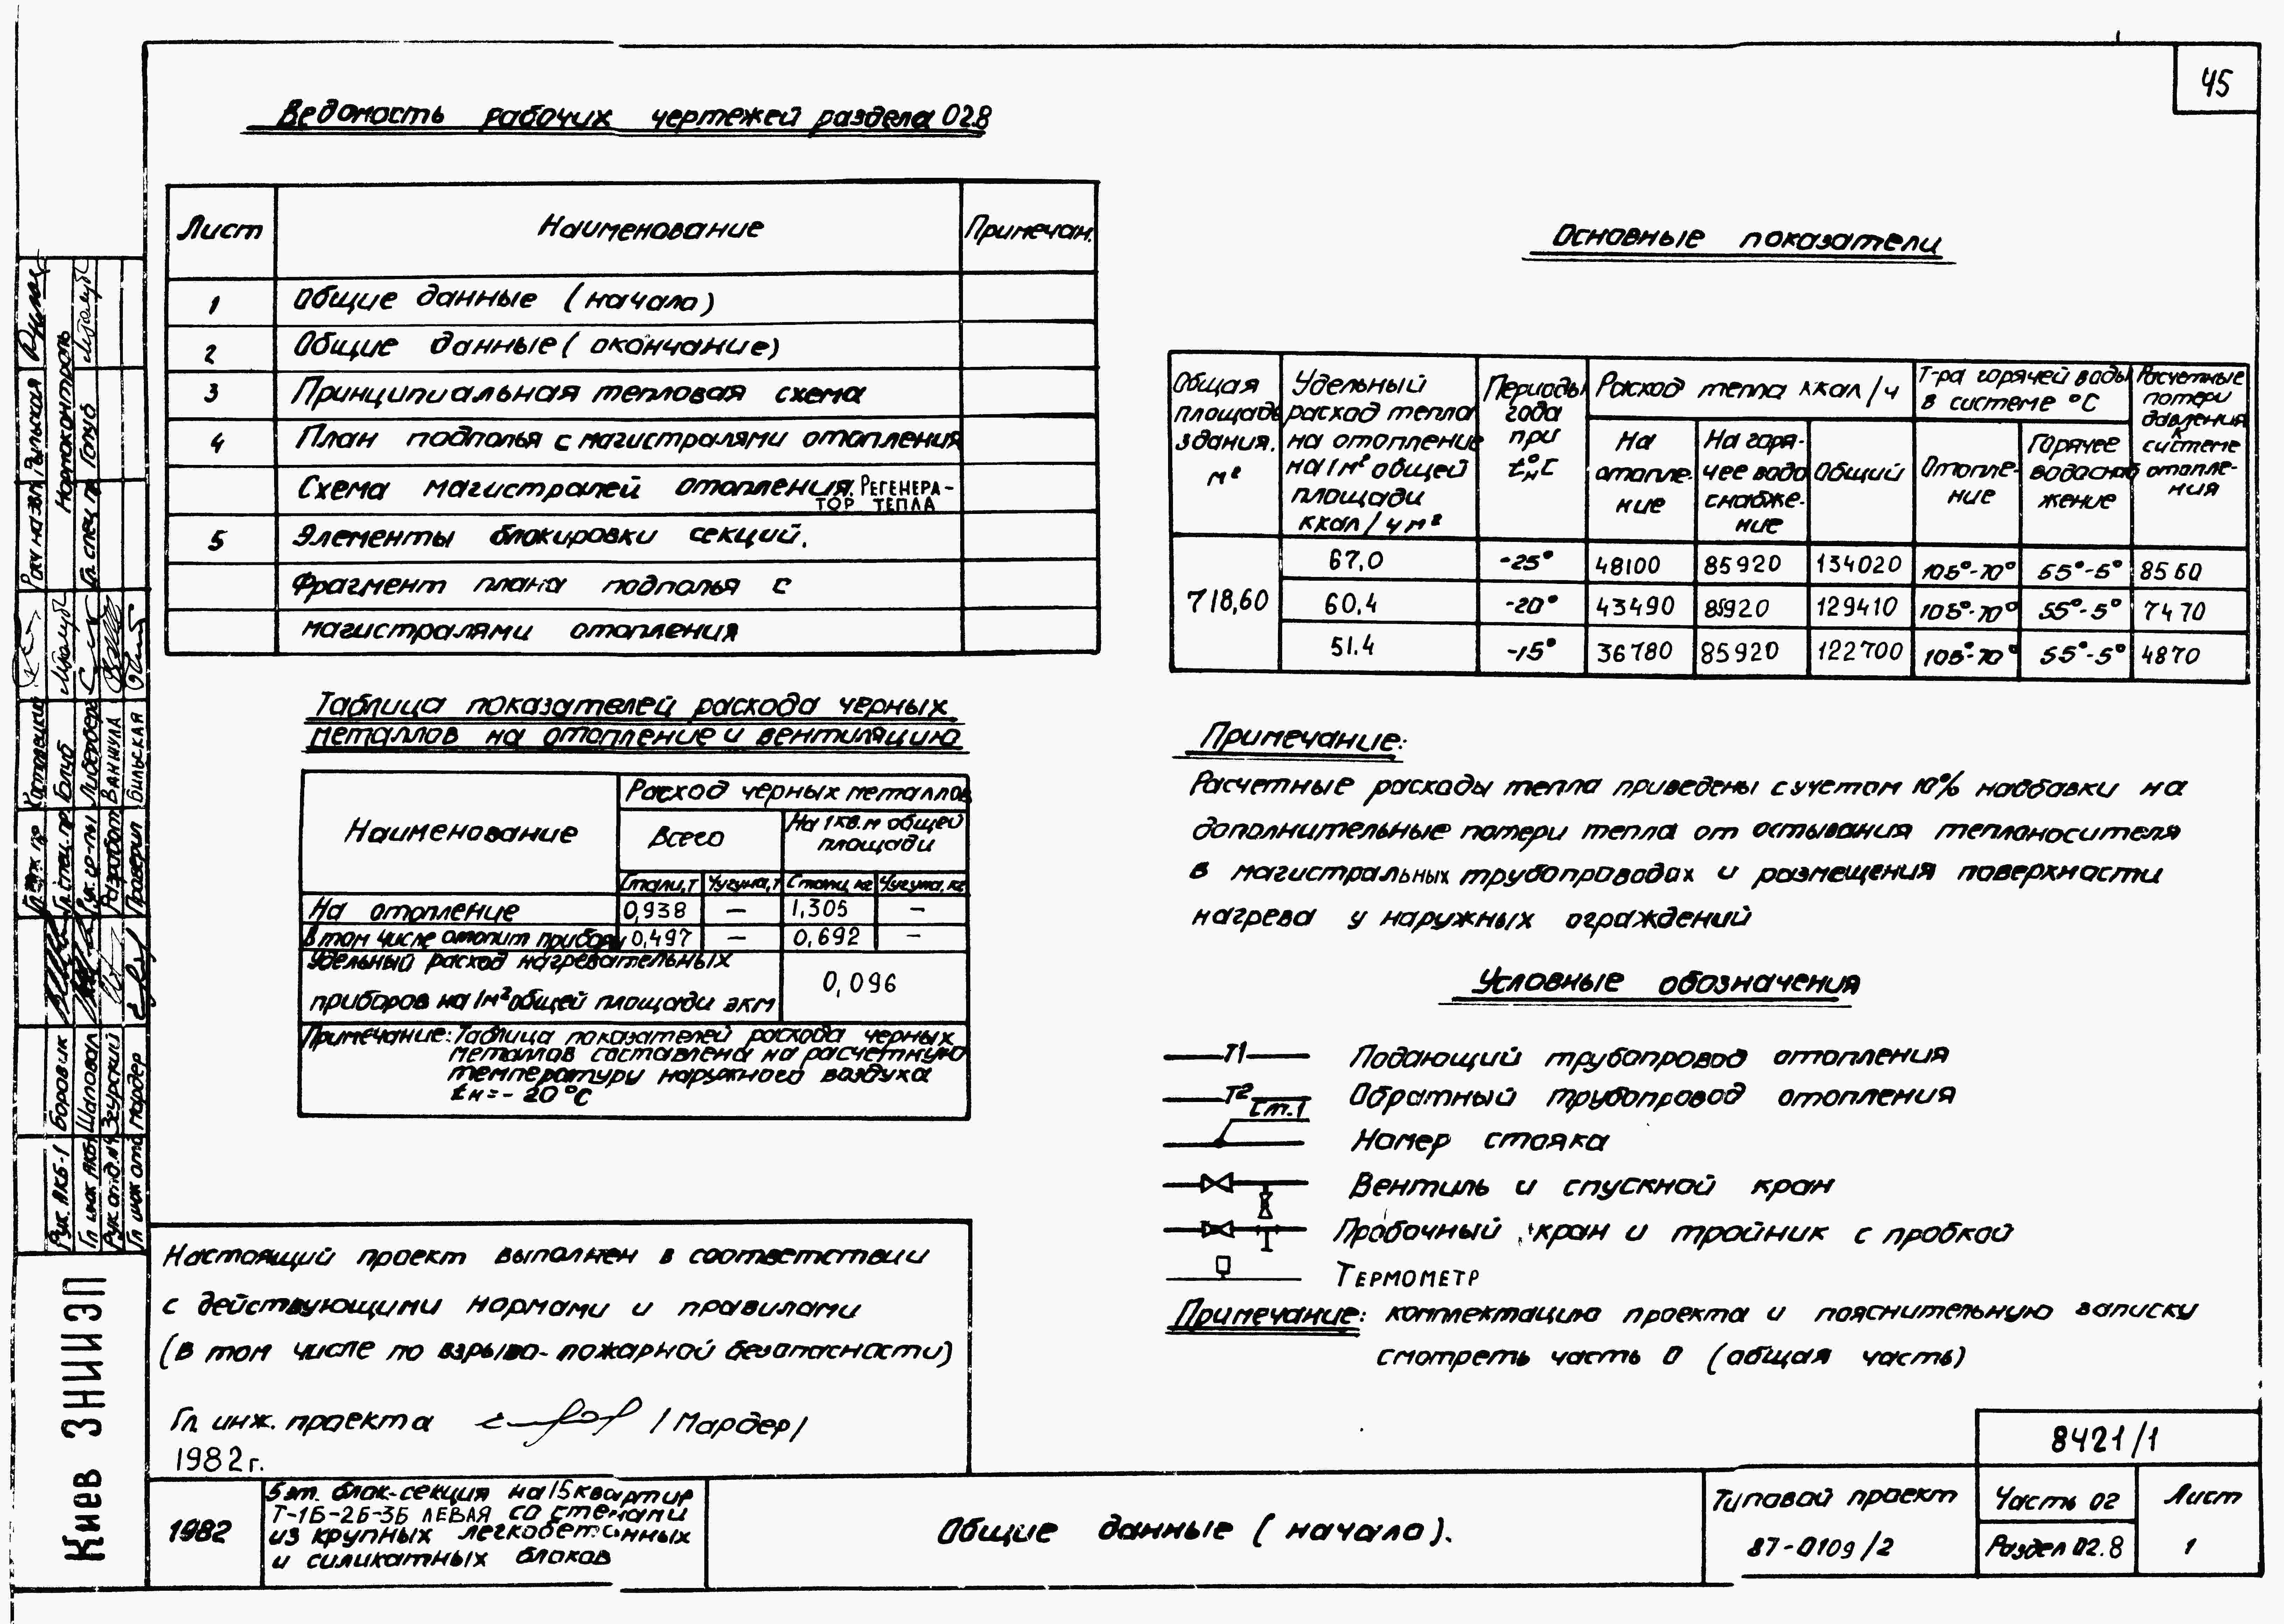 45
Ведомость рабочих чертежей раздела 02.8
Лист Наименование Примечан.
1 Общие данные (начало)
2 Общие данные (окончание)
3 Принципиальная тепловая схема
4 План подполья с магистралями отопления
Схема магистралей отопления. Регенера-
тор тепла
5 Элементы блокировки секций.
Фрагмент плана подполья с
магистралями отопления
Таблица показателей расхода черных
металлов на отопление и вентиляцию
Наименование
Расход черных металлов
Всего
На 1 кв.м общей
площади
Стали, т Чугуна, т Стали, кг Чугуна, кг
На отопление 0,938 — 1,305 —
В том числе отопит приборы 0,497 — 0,692 —
Удельный расход нагревательных
приборов на 1м² общей площади экм 0,096
Примечание: Таблица показателей расхода черных
металлов составлена на расчетную
температуру наружного воздуха
tн = - 20°С
Основные показатели
Общая
площадь
здания.
м²
Удельный
расход тепла
на отопление
на 1м² общей
площади
ккал/ч м²
Периоды
года
при
t°н С
Расход тепла ккал/ч
На
отопле-
ние
На горя-
чее водо
снабже-
ние
Общий
Т-ра горячей воды
в системе °С
Отопле-
ние
Горячее
водоснаб
жение
Расчетные
потери
давления
к
системе
отопле-
ния
718,60
67,0 -25° 48100 85920 134020 105°-70° 55°-5° 8560
60.4 -20° 43490 85920 129410 105°-70° 55°-5° 7470
51.4 -15° 36780 85920 122700 105°-70° 55°-5° 4870
Примечание:
Расчетные расходы тепла приведены с учетом 10% надбавки на
дополнительные потери тепла от остывания теплоносителя
в магистральных трубопроводах и размещения поверхности
нагрева у наружных ограждений
Условные обозначения
Т1 Подающий трубопровод отопления
Т2 Обратный трубопровод отопления
Ст.1 Номер стояка
Вентиль и спускной кран
Пробочный кран и тройник с пробкой
Термометр
Примечание: комплектацию проекта и пояснительную записку
смотреть часть 0 (общая часть)
Настоящий проект выполнен в соответствии
с действующими нормами и правилами
(в том числе по взрыво-пожарной безопасности)
Гл. инж. проекта /Мардер/
1982 г.
8421/1
1982
5 эт. блок-секция на 15 квартир
Т-1Б-2Б-3Б левая со стенами
из крупных легкобетонных
и силикатных блоков
Общие данные (начало).
Типовой проект
87-0109/2
Часть 02
Раздел 02.8
Лист
1
Киев ЗНИИЭП
Рук. АКБ-1 Боровик
Гл инж АКБ-1 Шаповал
Рук отд. №4 Згурский
Гл инж отд Мардер
Гл. спец. пр Голуб
Рук. гр-пы Либерберг
Разработ Ваникула
Проверил Бильская
Нормоконтроль
Гл. спец пр Голуб